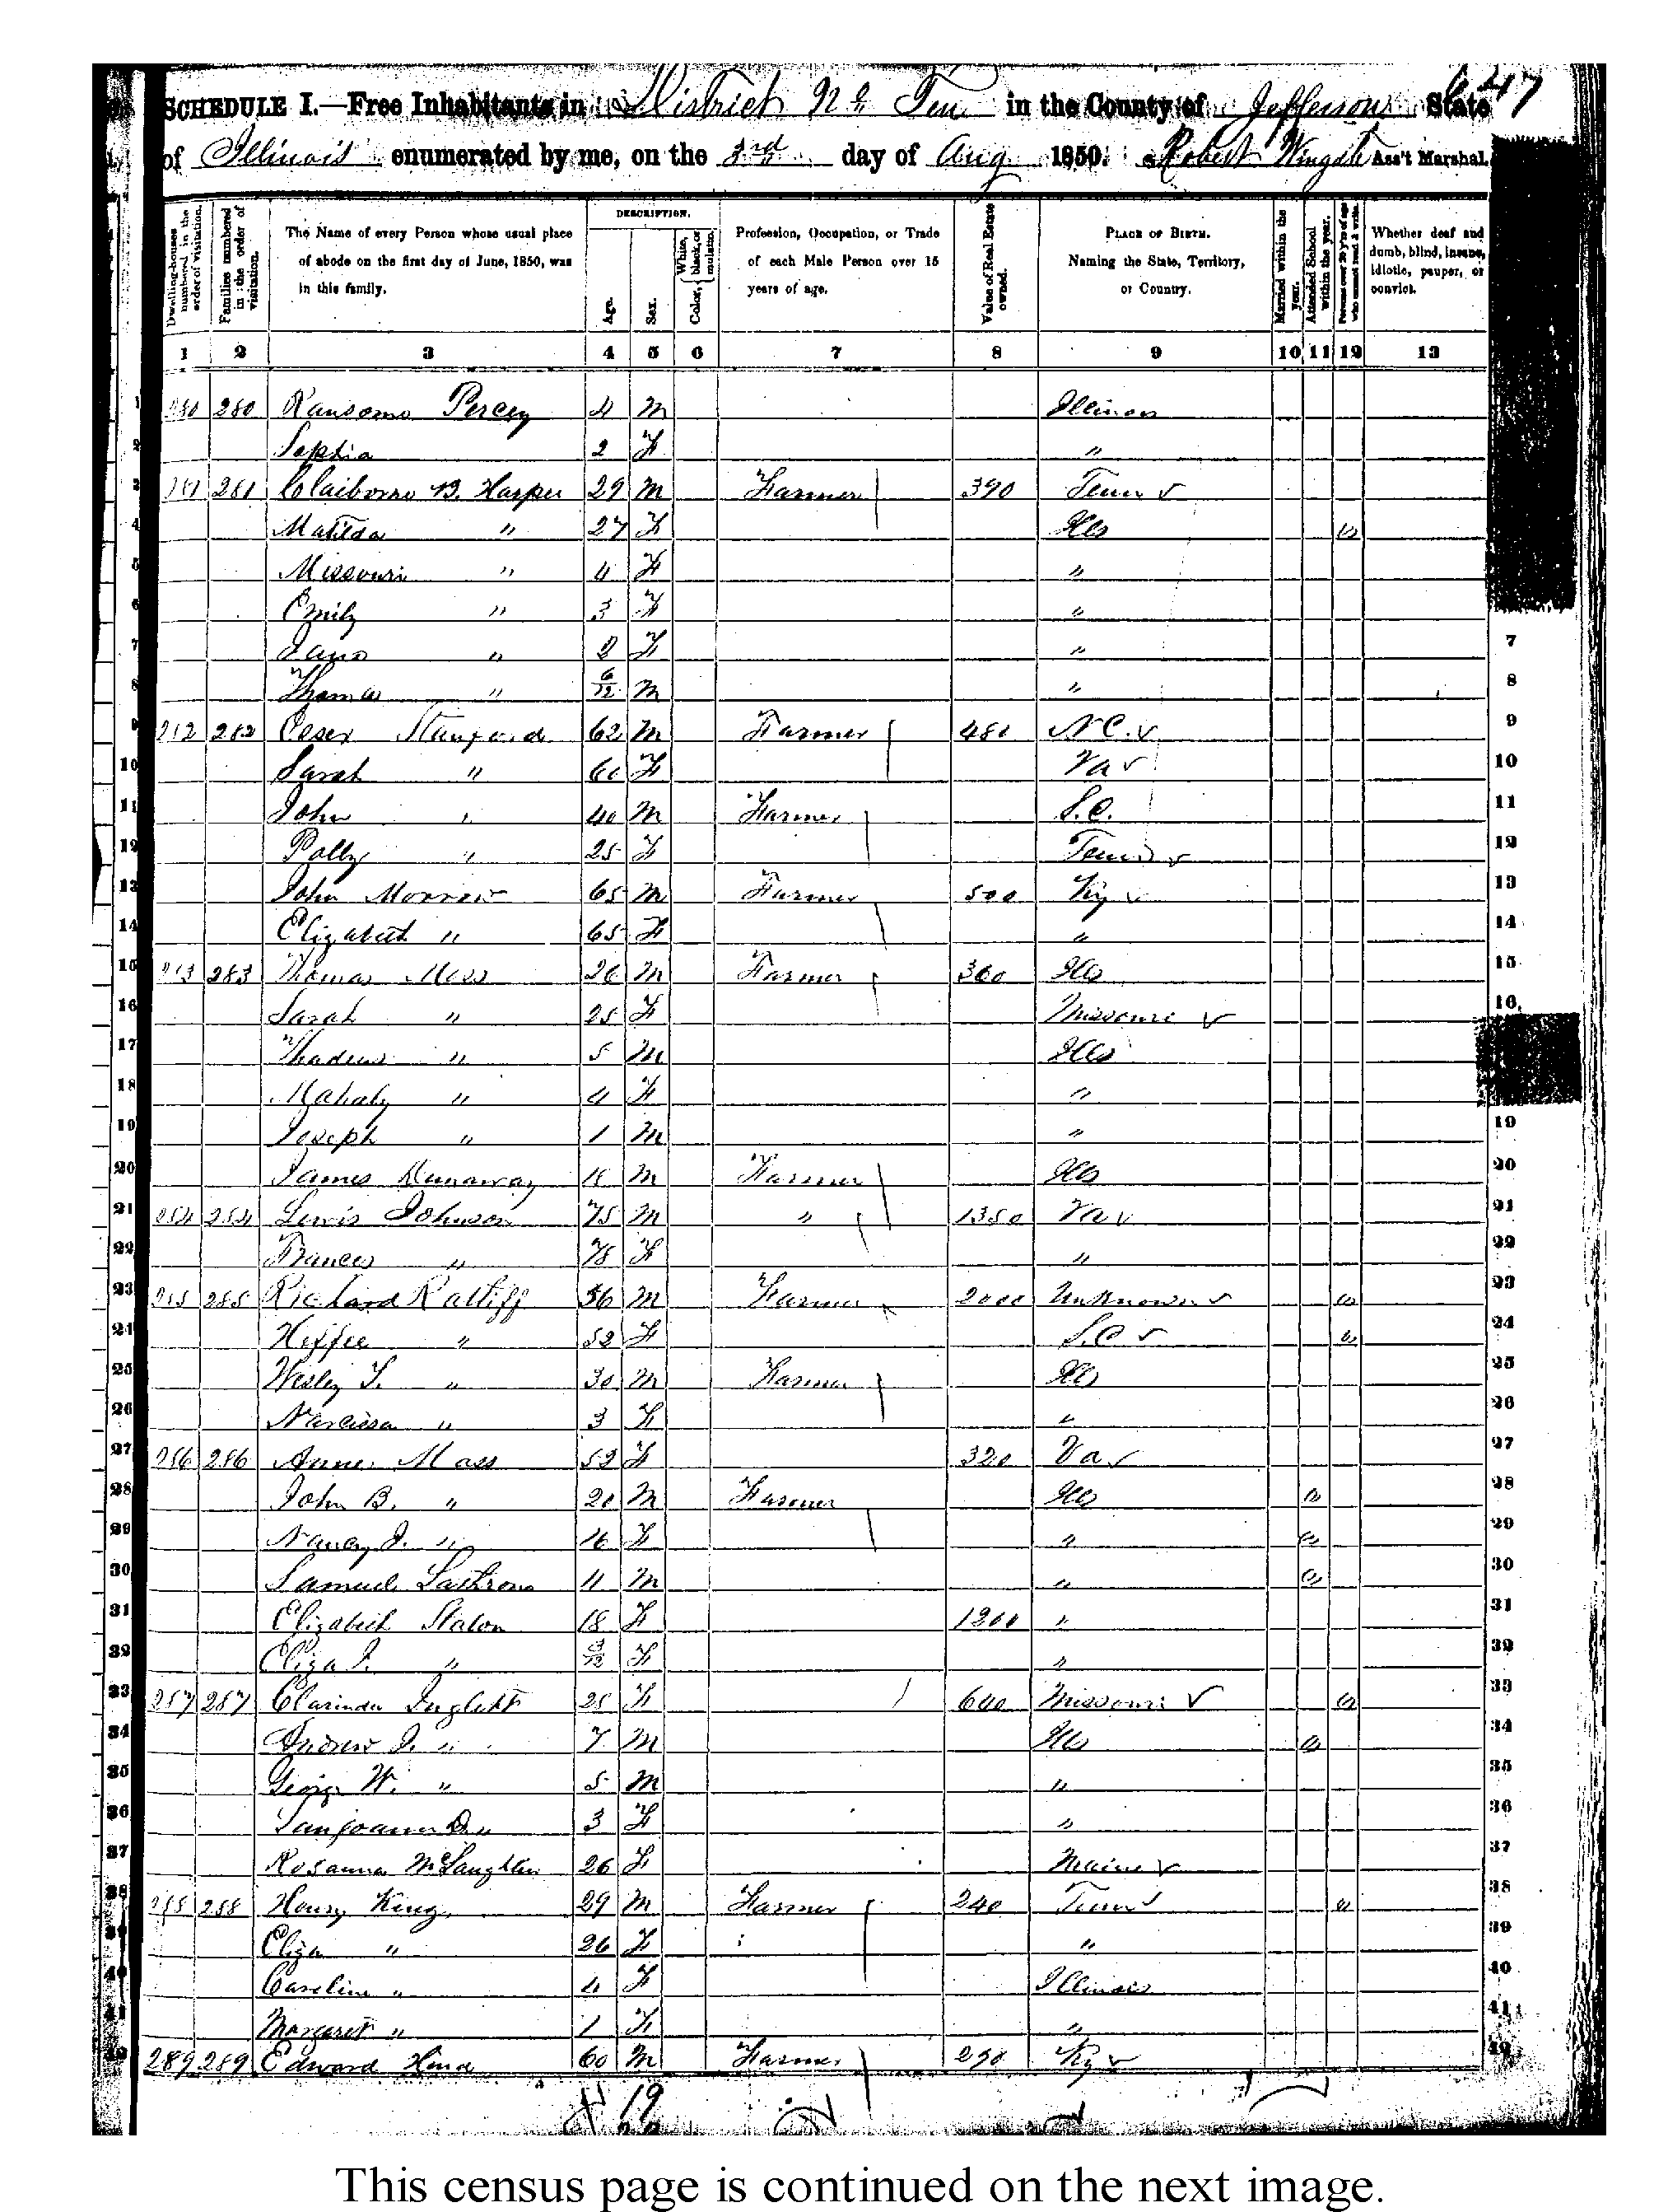 647
SCHEDULE I.—Free Inhabitants in District No Ten in the County of Jefferson State
of Illinois enumerated by me, on the 3rd day of Aug 1850. Robert Wingate Ass't Marshal.
Dwelling-houses numbered in the order of visitation.
Families numbered in the order of visitation.
The Name of every Person whose usual place of abode on the first day of June, 1850, was in this family.
DESCRIPTION.
Age.
Sex.
Color, White, black, or mulatto.
Profession, Occupation, or Trade of each Male Person over 15 years of age.
Value of Real Estate owned.
PLACE OF BIRTH. Naming the State, Territory, or Country.
Married within the year.
Attended School within the year.
Persons over 20 y'rs of age who cannot read & write.
Whether deaf and dumb, blind, insane, idiotic, pauper, or convict.
1 2 3 4 5 6 7 8 9 10 11 12 13
1 280 280 Ransome Percey 4 M Illinois
2 Sophia 2 F "
3 281 281 Claiborne B. Harper 29 M Farmer 390 Tenn
4 Matilda " 27 F Ills
5 Missouri " 4 F "
6 Emily " 3 F "
7 Jane " 2 F " 7
8 Thomas " 6/12 M " 8
9 282 282 Stanford 62 M Farmer 480 N C. 9
10 Sarah " 60 F Va 10
11 John " 40 M Farmer S.C. 11
12 Polly " 25 F Tenn 12
13 John Morrow 65 M Farmer 500 Ky 13
14 Elizabeth " 65 F " 14
15 283 283 Thomas Moss 26 M Farmer 360 Ills 15
16 Sarah " 25 F Missouri 16
17 Thadeus " 5 M Ills
18 Mahaly " 4 F "
19 Joseph " 1 M " 19
20 James Dunaway 18 M Farmer Ills 20
21 284 284 Lewis Johnson 75 M " 1350 Va 21
22 Frances " 78 F " 22
23 285 285 Richard Ratliff 56 M Farmer 2000 Unknown " 23
24 " 52 F S.C " 24
25 Wesley " 30 M Farmer Ills 25
26 Narcissa " 3 F " 26
27 286 286 Anne Moss 52 F 320 Va 27
28 John B. " 20 M Farmer Ills " 28
29 Nancy J. " 16 F " " 29
30 Samuel 11 M " " 30
31 Elizabeth Staton 18 F 1200 " 31
32 Eliza J. " 3/12 F " 32
33 287 287 Clarinda 28 F 600 Missouri " 33
34 Andrew J. " 7 M Ills " 34
35 George W. " 5 M " 35
36 D. " 3 F " 36
37 Rosanna McLaughlin 26 F Maine 37
38 288 288 Henry King 29 M Farmer 240 Tenn " 38
39 Eliza " 26 F " 39
40 Caroline " 4 F Illinois 40
41 Margaret " 1 F " 41
42 289 289 Edward 60 M Farmer 290 Ky 42
19
This census page is continued on the next image.